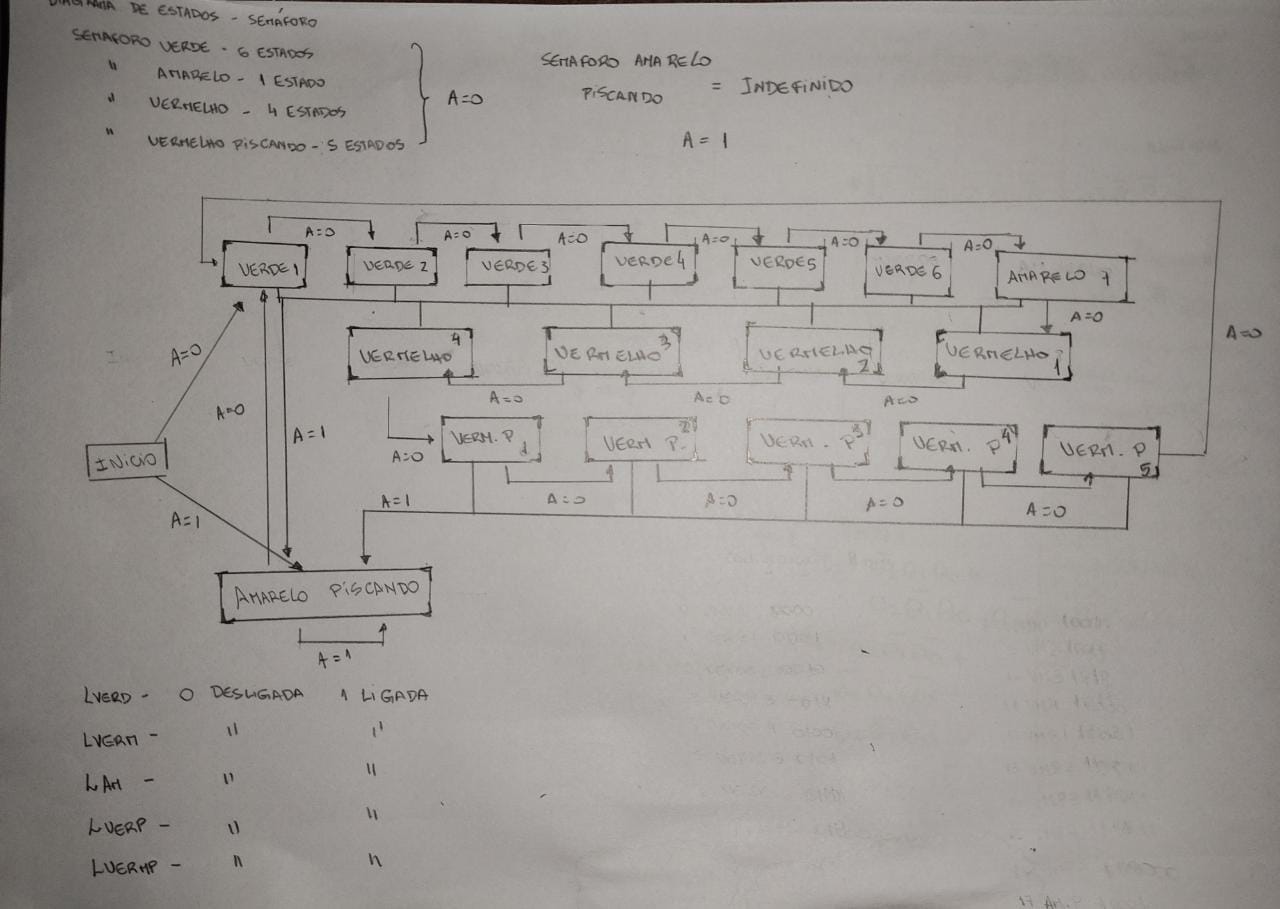 DIAGRAMA DE ESTADOS - SEMÁFORO
SEMAFORO VERDE - 6 ESTADOS
" AMARELO - 1 ESTADO
" VERMELHO - 4 ESTADOS
" VERMELHO PISCANDO - 5 ESTADOS
A=0
SEMAFORO AMARELO
PISCANDO = INDEFINIDO
A = 1
A=0 A=0 A=0 A=0 A=0 A=0
VERDE 1 VERDE 2 VERDE 3 VERDE 4 VERDE 5 VERDE 6 AMARELO 1
A=0
A=0
VERMELHO 4 VERMELHO 3 VERMELHO 2 VERMELHO 1
A=0
A=0 A=0 A=0
A=0
A=1
VERM. P 1 VERM P 2 VERM. P 3 VERM. P 4 VERM. P 5
A=0
INICIO
A=1 A=0 A=0 A=0 A=0
A=1
AMARELO PISCANDO
A=1
LVERD - 0 DESLIGADA 1 LIGADA
LVERM - " "
LAM - " "
LVERP - " "
LVERMP - " "